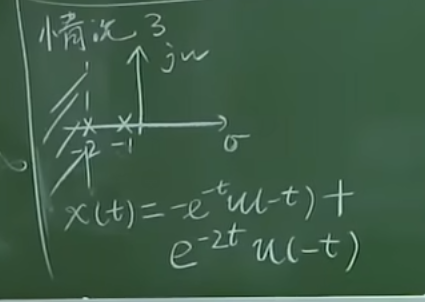 情况 3
jw
σ
-2 -1
x(t)=-e^{-t}u(-t)+
e^{-2t}u(-t)